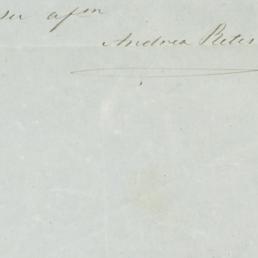 su afm
Andrea Peter